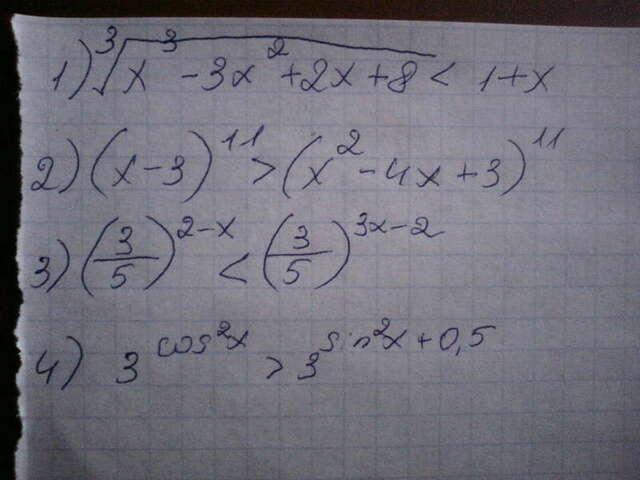 1) ∛(x³ - 3x² + 2x + 8) < 1 + x
2) (x - 3)¹¹ > (x² - 4x + 3)¹¹
3) (3/5)^(2-x) < (3/5)^(3x-2)
4) 3^(cos²x) > 3^(sin²x + 0,5)